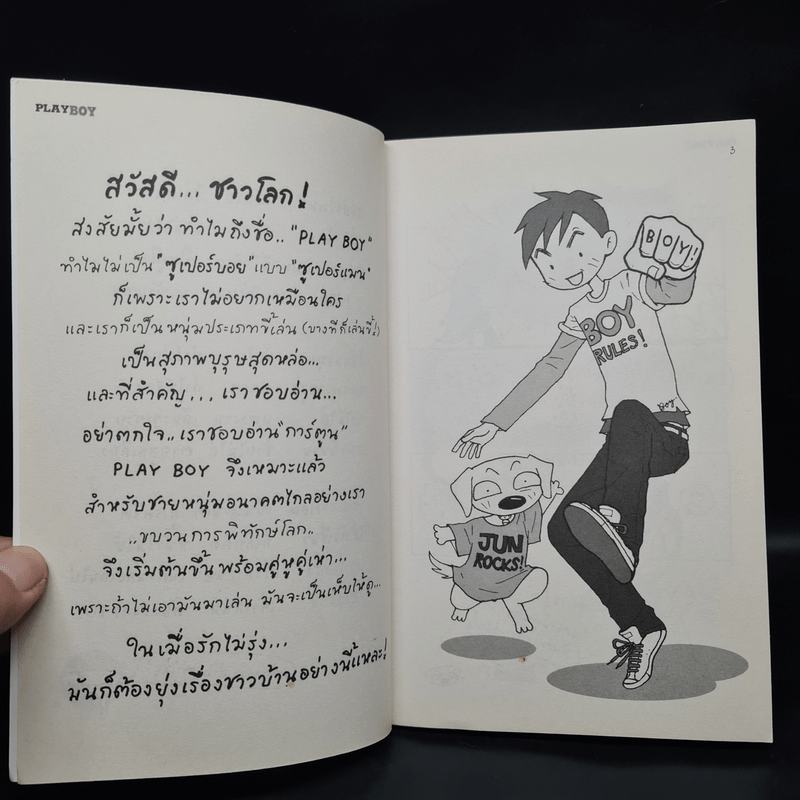 PLAYBOY
สวัสดี... ชาวโลก!
สงสัยมั้ยว่า ทำไมถึงชื่อ.. "PLAY BOY"
ทำไมไม่เป็น "ซูเปอร์บอย" แบบ "ซูเปอร์แมน"
ก็เพราะเราไม่อยากเหมือนใคร
และเราก็เป็นหนุ่มประเภทขี้เล่น (บางทีก็เล่นขี้!)
เป็นสุภาพบุรุษสุดหล่อ...
และที่สำคัญ... เราชอบอ่าน...
อย่าตกใจ.. เราชอบอ่าน "การ์ตูน"
PLAY BOY จึงเหมาะแล้ว
สำหรับชายหนุ่มอนาคตไกลอย่างเรา
..ขบวนการพิทักษ์โลก..
จึงเริ่มต้นขึ้น พร้อมคู่หูคู่เห่า...
เพราะถ้าไม่เอามันมาเล่น มันจะเป็นเห็บให้ดู...
ในเมื่อรักไม่รุ่ง...
มันก็ต้องยุ่งเรื่องชาวบ้านอย่างนี้แหละ!
3
BOY!
BOY
RULES!
BOY
JUN
ROCKS!